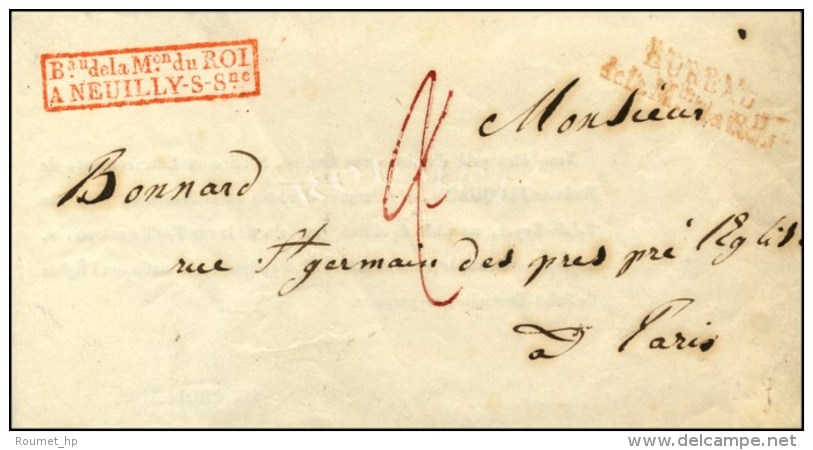 Bau de la Mon du ROI
A NEUILLY-S-Sne
BUREAU
de la Mon du Roi
Monsieur
Bonnard
rue St germain des pres pré l'Eglise
a Paris
Roumet_hp
www.delcampe.net